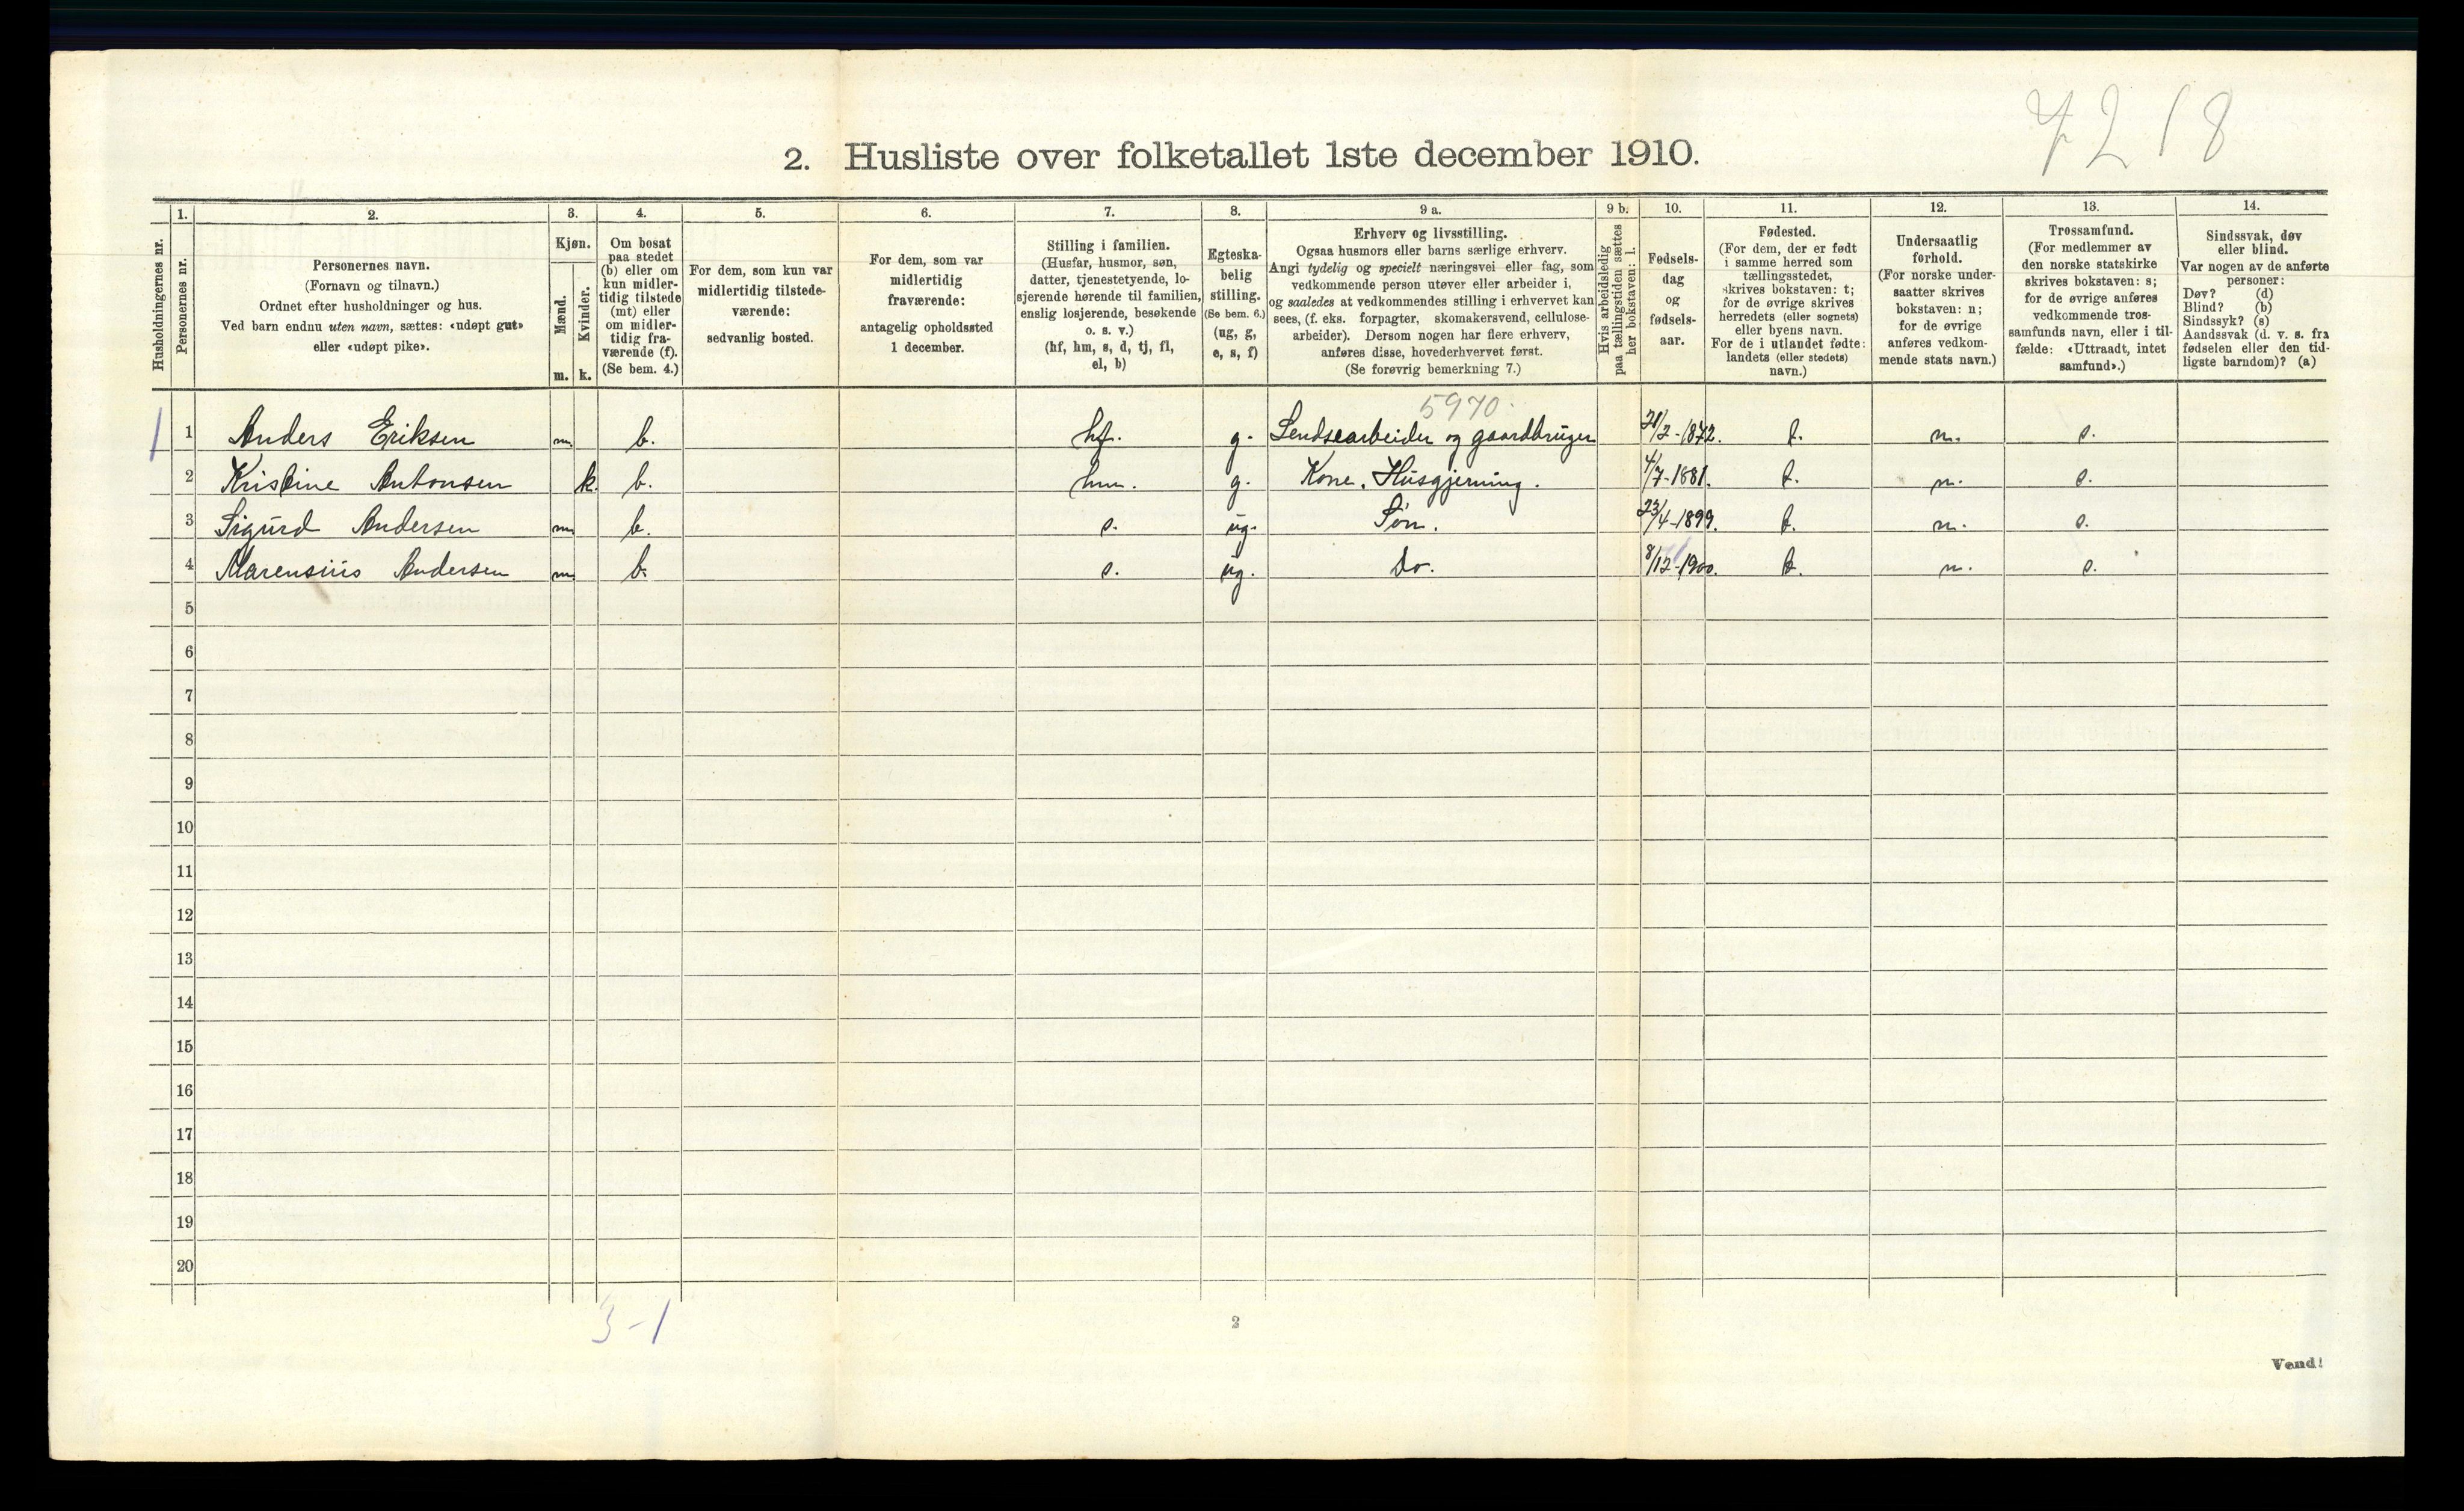 7218
2. Husliste over folketallet 1ste december 1910.
Husholdningernes nr.
1.
Personernes nr.
2.
Personernes navn.
(Fornavn og tilnavn.)
Ordnet efter husholdninger og hus.
Ved barn endnu uten navn, sættes: «udøpt gut»
eller «udøpt pike».
3.
Kjøn.
Mænd.
m.
Kvinder.
k.
4.
Om bosat
paa stedet
(b) eller om
kun midler-
tidig tilstede
(mt) eller
om midler-
tidig fra-
værende (f).
(Se bem. 4.)
5.
For dem, som kun var
midlertidig tilstede-
værende:
sedvanlig bosted.
6.
For dem, som var
midlertidig
fraværende:
antagelig opholdssted
1 december.
7.
Stilling i familien.
(Husfar, husmor, søn,
datter, tjenestetyende, lo-
sjerende hørende til familien,
enslig losjerende, besøkende
o. s. v.)
(hf, hm, s, d, tj, fl,
el, b)
8.
Egteska-
belig
stilling.
(Se bem. 6.)
(ug, g,
e, s, f)
9 a.
Erhverv og livsstilling.
Ogsaa husmors eller barns særlige erhverv.
Angi tydelig og specielt næringsvei eller fag, som
vedkommende person utøver eller arbeider i,
og saaledes at vedkommendes stilling i erhvervet kan
sees, (f. eks. forpagter, skomakersvend, cellulose-
arbeider). Dersom nogen har flere erhverv,
anføres disse, hovederhvervet først.
(Se forøvrig bemerkning 7.)
9 b.
Hvis arbeidsledig
paa tællingstiden sættes
her bokstaven: l.
10.
Fødsels-
dag
og
fødsels-
aar.
11.
Fødested.
(For dem, der er født
i samme herred som
tællingsstedet,
skrives bokstaven: t;
for de øvrige skrives
herredets (eller sognets)
eller byens navn.
For de i utlandet fødte:
landets (eller stedets)
navn.)
12.
Undersaatlig
forhold.
(For norske under-
saatter skrives
bokstaven: n;
for de øvrige
anføres vedkom-
mende stats navn.)
13.
Trossamfund.
(For medlemmer av
den norske statskirke
skrives bokstaven: s;
for de øvrige anføres
vedkommende tros-
samfunds navn, eller i til-
fælde: «Uttraadt, intet
samfund».)
14.
Sindssvak, døv
eller blind.
Var nogen av de anførte
personer:
Døv? (d)
Blind? (b)
Sindssyk? (s)
Aandssvak (d. v. s. fra
fødselen eller den tid-
ligste barndom)? (a)
5970
1 1 Anders Eriksen m. b. hf. g. Lendsearbeider og gaardbruger 21/2-1872. t. n. s.
2 Kristine Antonsen k. b. hm. g. Kone. Husgjerning. 4/7-1881. t. n. s.
3 Sigurd Andersen m. b. s. ug. Søn. 23/4-1899. t. n. s.
4 Marensius Andersen m. b. s. ug. Do. 8/12-1900. t. n. s.
5
6
7
8
9
10
11
12
13
14
15
16
17
18
19
20
3-1
2
Vend!